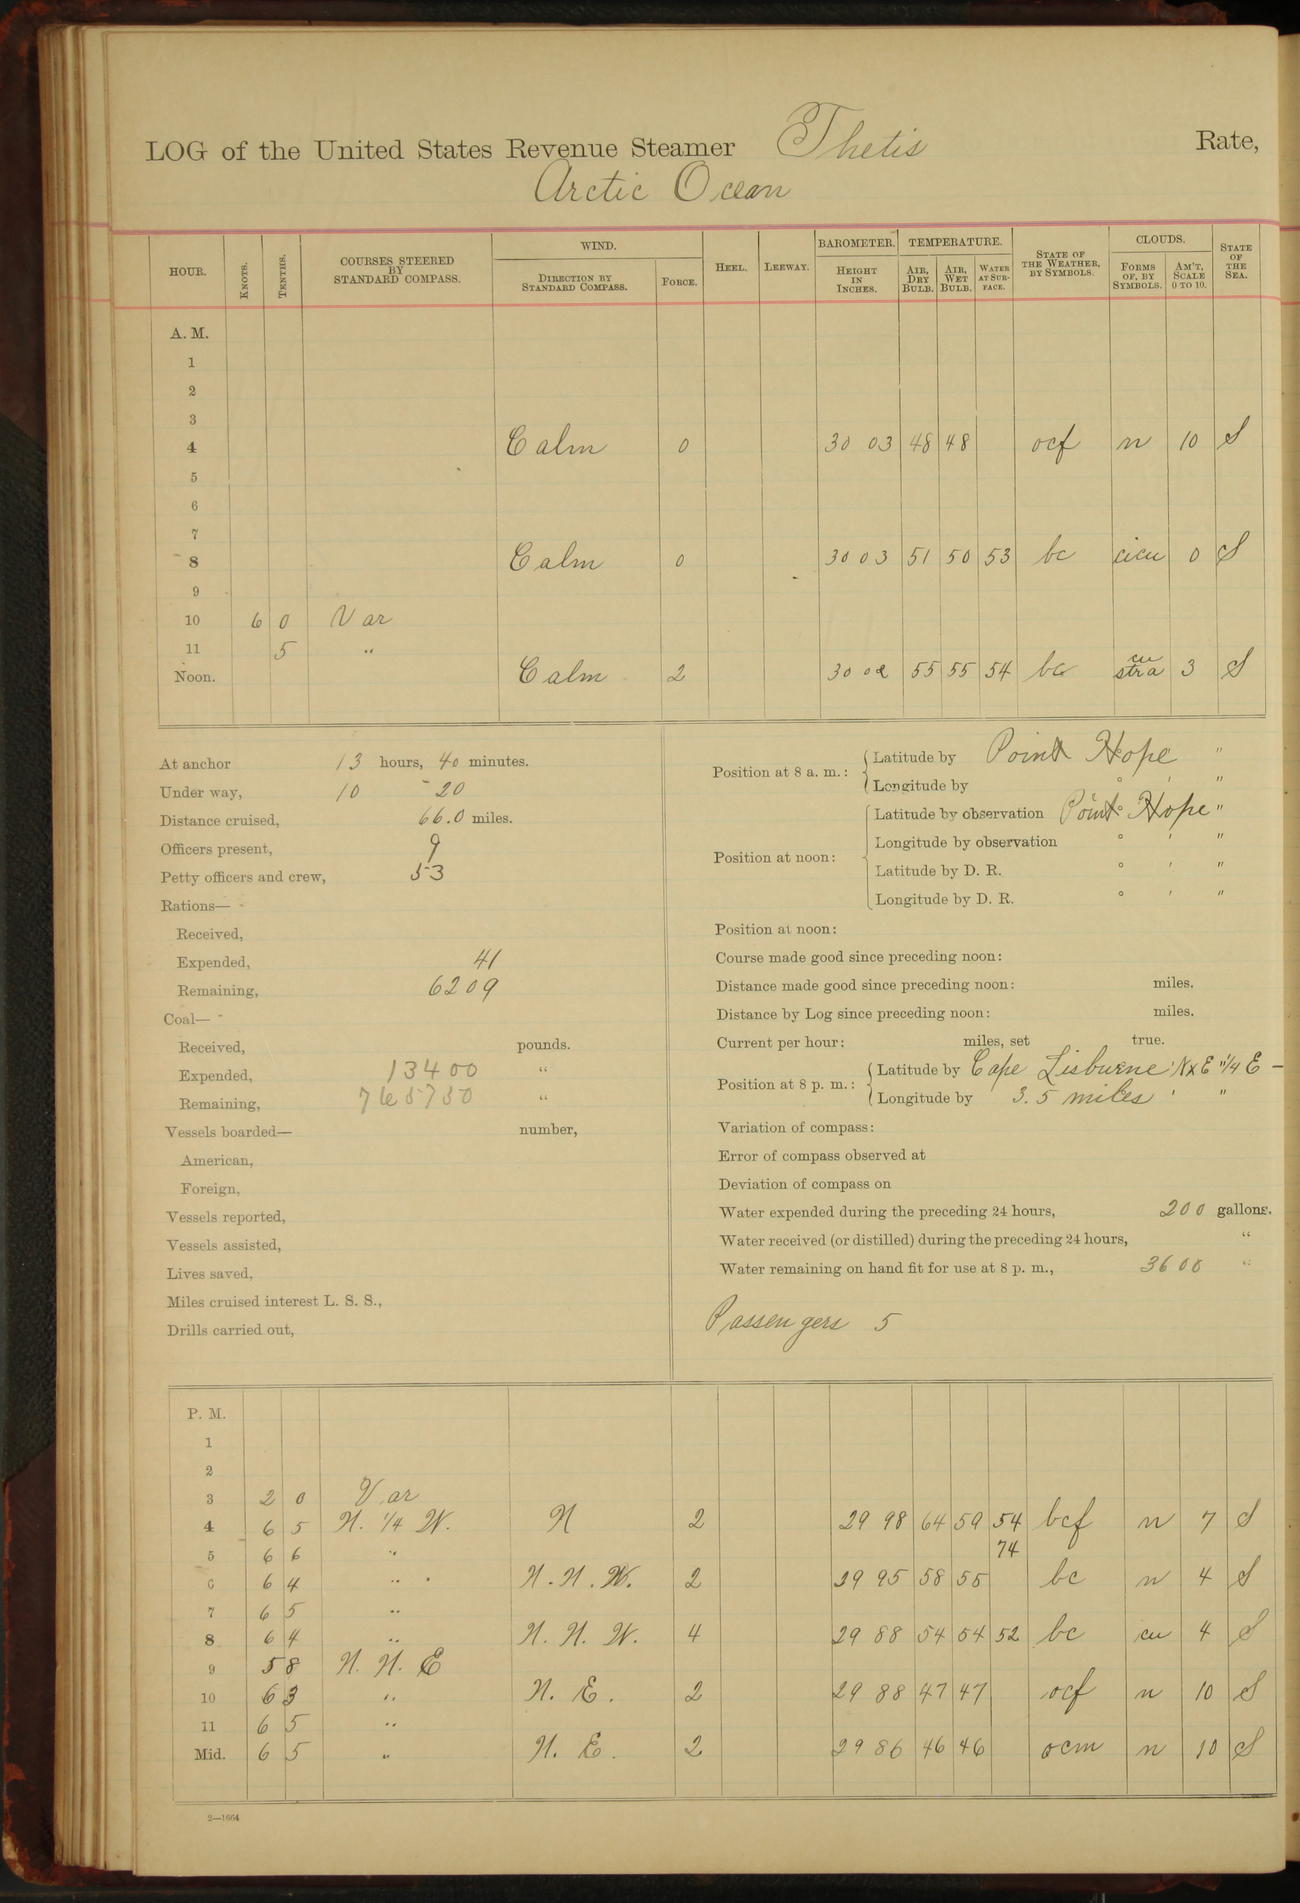 LOG of the United States Revenue Steamer Thetis Rate,
Arctic Ocean
HOUR. KNOTS. TENTHS. COURSES STEERED BY STANDARD COMPASS. WIND. DIRECTION BY STANDARD COMPASS. FORCE. HEEL. LEEWAY. BAROMETER. HEIGHT IN INCHES. TEMPERATURE. AIR, DRY BULB. AIR, WET BULB. WATER AT SURFACE. STATE OF THE WEATHER, BY SYMBOLS. CLOUDS. FORMS OF, BY SYMBOLS. AM'T, SCALE 0 TO 10. STATE OF THE SEA.
A. M.
1
2
3
4 Calm 0 30 03 48 48 ocf n 10 S
5
6
7
8 Calm 0 30 03 51 50 53 bc cicu 0 S
9
10 6 0 Var
11 5 "
Noon. Calm 2 30 02 55 55 54 bc cu stra 3 S
At anchor 13 hours, 40 minutes.
Under way, 10 20
Distance cruised, 66.0 miles.
Officers present, 9
Petty officers and crew, 53
Rations—
Received,
Expended, 41
Remaining, 6209
Coal—
Received, pounds.
Expended, 13400 "
Remaining, "
Vessels boarded— number,
American,
Foreign,
Vessels reported,
Vessels assisted,
Lives saved,
Miles cruised interest L. S. S.,
Drills carried out,
Position at 8 a. m.: Latitude by Point Hope "
Longitude by ° ' "
Position at noon: Latitude by observation Point Hope ° ' "
Longitude by observation ° ' "
Latitude by D. R. ° ' "
Longitude by D. R. ° ' "
Position at noon:
Course made good since preceding noon:
Distance made good since preceding noon: miles.
Distance by Log since preceding noon: miles.
Current per hour: miles, set true.
Position at 8 p. m.: Latitude by Cape Lisburne ' NxE " 1/4 E —
Longitude by 3.5 miles ' "
Variation of compass:
Error of compass observed at
Deviation of compass on
Water expended during the preceding 24 hours, 200 gallons.
Water received (or distilled) during the preceding 24 hours, "
Water remaining on hand fit for use at 8 p. m., 3600 "
Passengers 5
P. M.
1
2
3 2 0 Var
4 6 5 N. 1/4 W. N 2 29 98 64 59 54 bcf n 7 S
5 6 6 " 74
6 6 4 " N.N.W. 2 29 95 58 55 bc n 4 S
7 6 5 "
8 6 4 " N. N. W. 4 29 88 54 54 52 bc cu 4 S
9 5 8 N. N. E
10 6 3 " N. E. 2 29 88 47 47 ocf n 10 S
11 6 5 "
Mid. 6 5 " N. E. 2 29 86 46 46 ocm n 10 S
2—1664